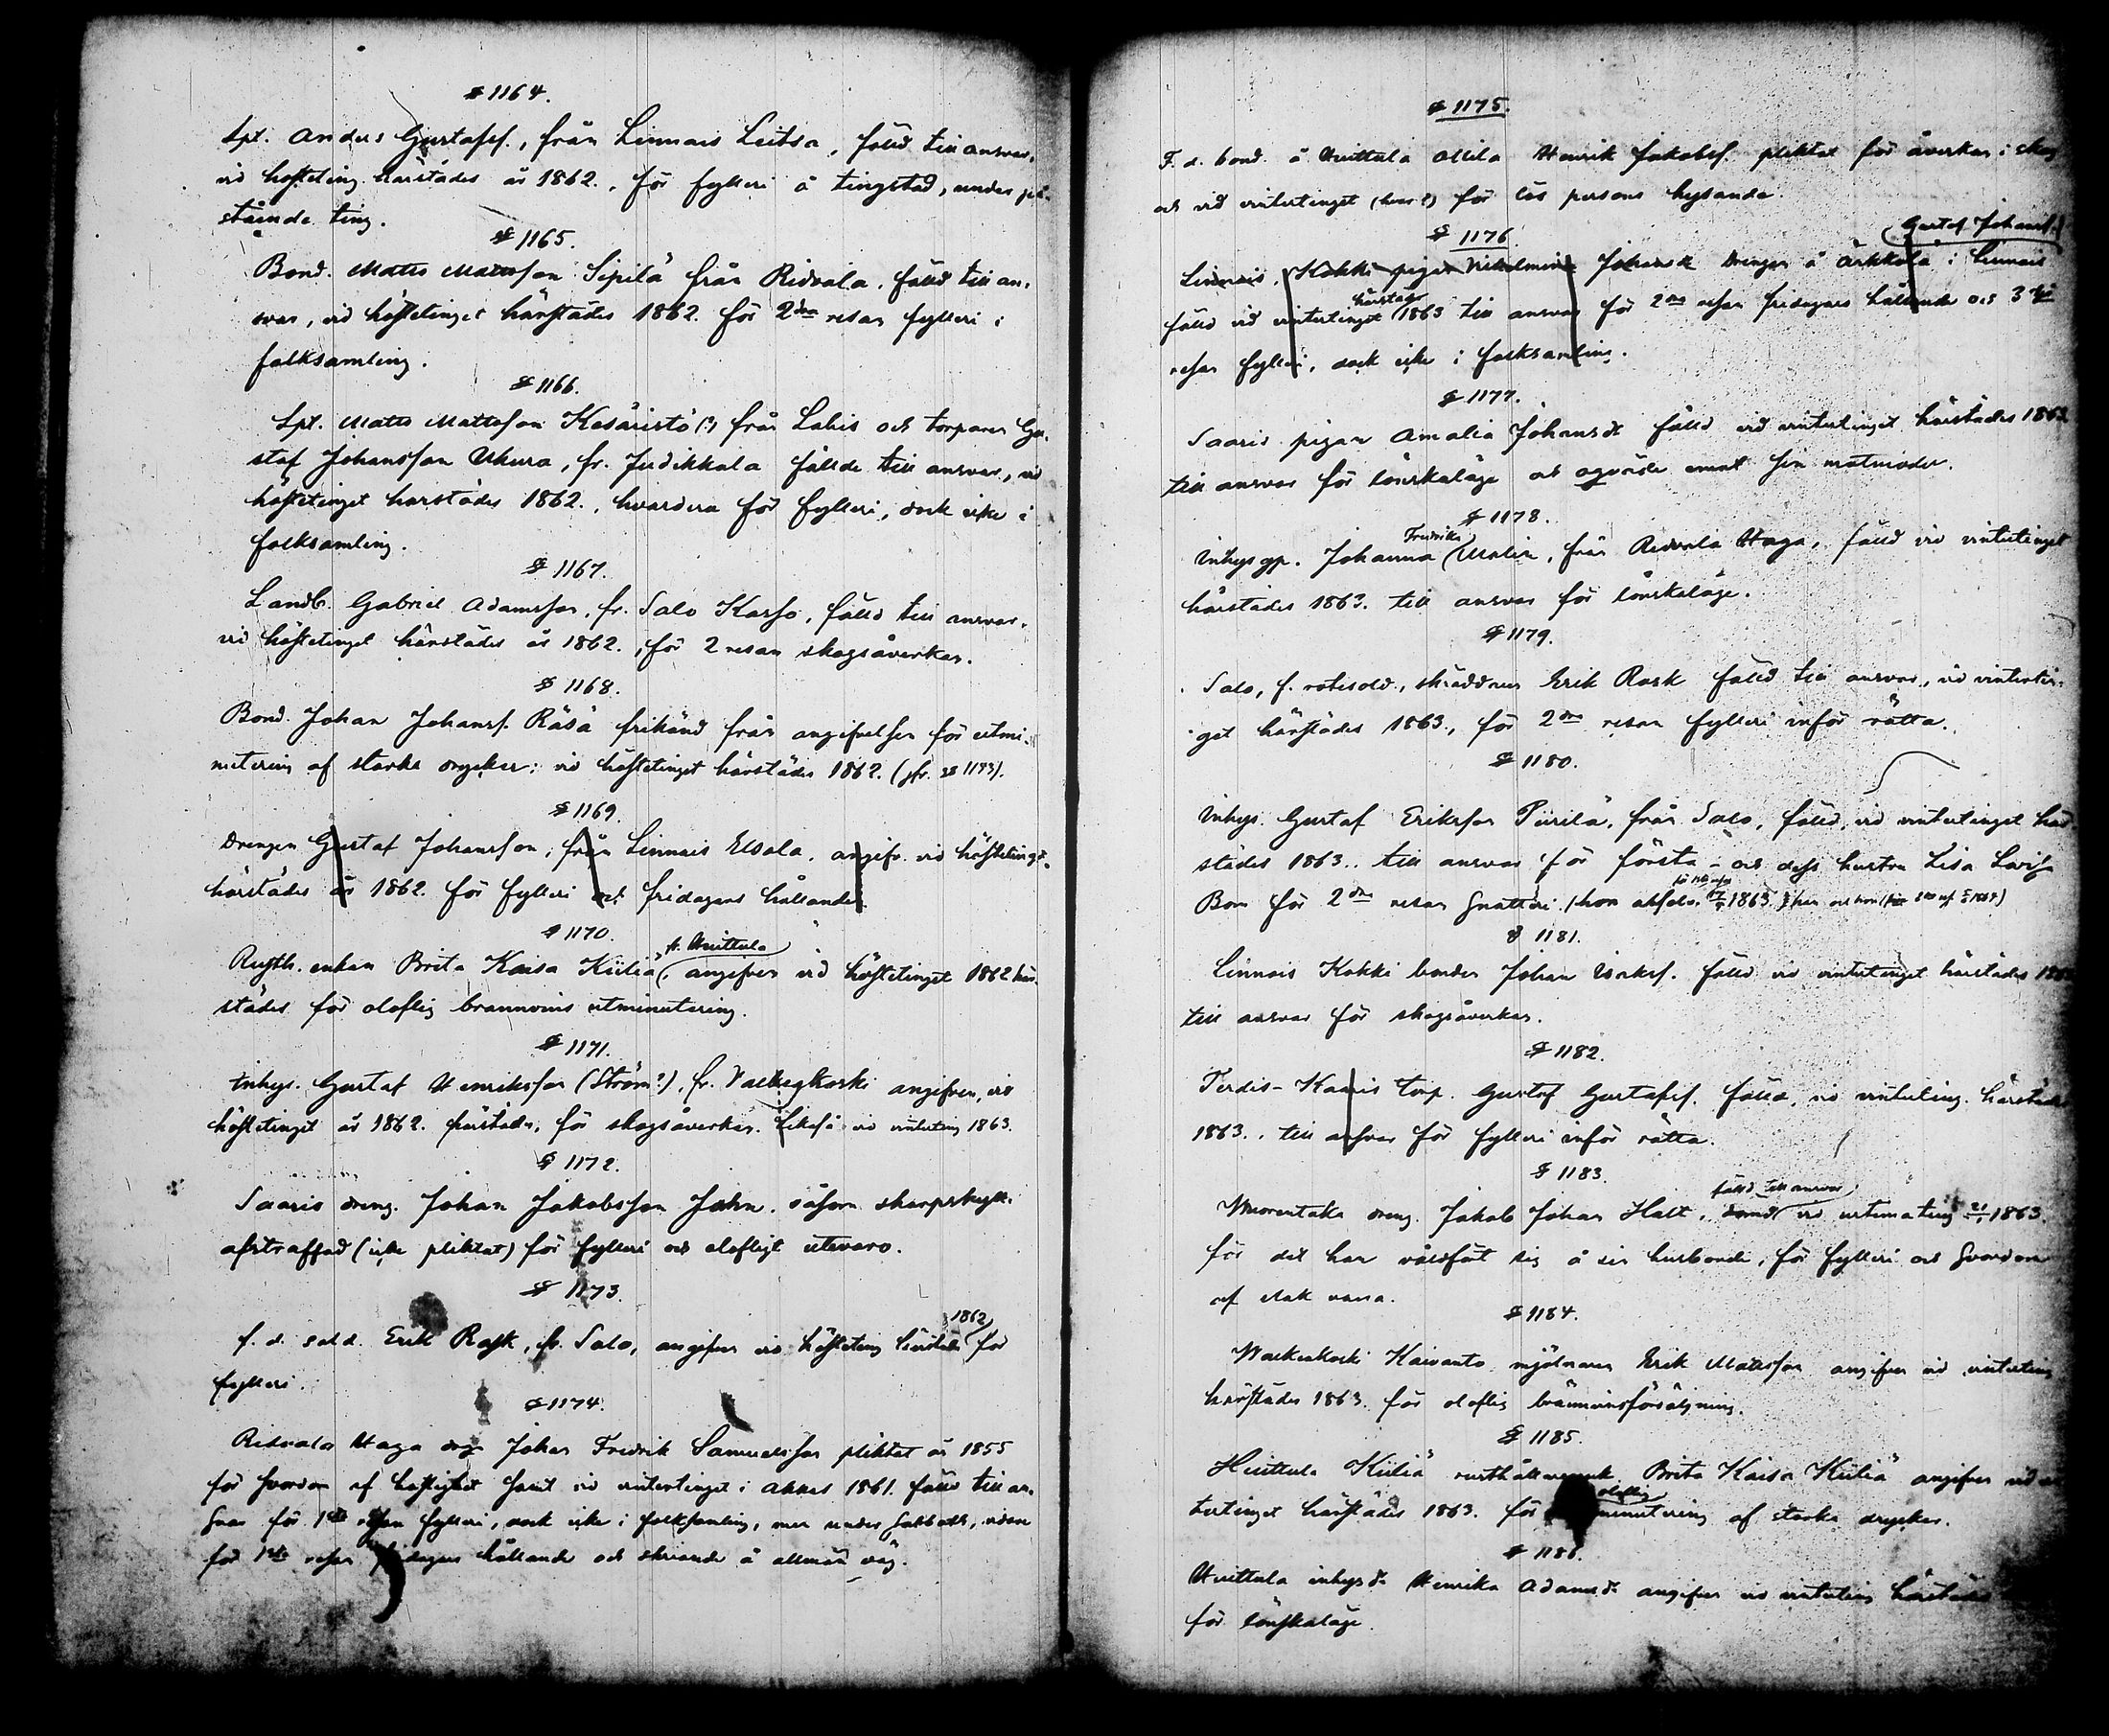 § 1164.
Spt. Anders Gustafsf., från Linnais Leitsa, fälld till ansvar,
vid hösteting härstädes år 1862., för fylleri å tingstad, under på-
stående ting.
§ 1165.
Bond. Matts Mattsson Sipilä från Ridvala, fälld till an-
svar, vid höstetinget härstädes 1862. för 2dra resan fylleri i
folksamling.
§ 1166.
Spt. Matts Mattsson Kesäristö (?) från Lahis och torparen Gu-
staf Johansson Uhura, fr. Judikkala fällde till ansvar, vid
höstetinget härstädes 1862., hvardera för fylleri, dock icke i
folksamling.
§ 1167.
Landb. Gabriel Adamsson, fr. Salo Kasso, fälld till ansvar,
vid höstetinget härstädes år 1862., för 2 resan skogsåverkan.
§ 1168.
Bond. Johan Johansf. Räsä frikänd från angifvelsen för utmi-
nutering af starka drycker: vid höstetinget härstädes 1862. (jfr. § 1193).
§ 1169.
Drengen Gustaf Johansson, från Linnais Elsola, angifv. vid höstetinget
härstädes år 1862. för fylleri och fridagars hållande.
§ 1170.
Rusth. enkan Brita Kaisa Kiiliä, fr. Huittula angifven vid höstetinget 1862 här-
städes för oloflig brännvins utminutering.
§ 1171.
Inhys. Gustaf Henriksson (Ström?), fr. Valkeakoski angifven, vid
höstetinget år 1862. härstädes, för skogsåverkan. Likaså vid vinterting 1863.
§ 1172.
Saaris dreng. Johan Jakobsson John, såsom skarpskytt.
afstraffad (icke pliktat) för fylleri och olofligt utevaro.
§ 1173.
f. d. sold. Erik Rask, fr. Salo, angifven vid hösteting härstädes 1862 för
fylleri.
§ 1174.
Ridvala Haga dreng Johan Fredrik Samuelsson pliktat år 1855
för svordom af hastighet samt vid vintertinget i Akkas 1861. fälld till an-
svar för 1sta resan fylleri, dock icke i folksamling, men under sabbath, vidare
för 1sta resan fridagars hållande och skriande å allmän väg.
§ 1175.
F. d. bond. å Huittula Ollila Henrik Jakobsf. pliktat för åverkan i skog
och vid vintertinget (hvar?) för lös persons hysande.
§ 1176.
Linnais, Kokki pigan Vilhelmina Johansd. Drengen å Arkkola i Linnais Gustaf Johansf.
fälld vid vintertinget härstädes 1863 till ansvar för 2dra resan fridagars hållande och 3dje
resan fylleri, dock icke i folksamling.
§ 1177.
Saaris pigan Amalia Johansdt fälld vid vintertinget härstädes 1863
till ansvar för lönskaläge och oqväde emot sin matmoder.
§ 1178.
Inhysqp. Johanna Fredrika Malin, från Ridvala Haga, fälld vid vintertinget
härstädes 1863. till ansvar för lönskaläge.
§ 1179.
Salo, f. rotesold., skräddaren Erik Rask fälld till ansvar, vid vintertin-
get härstädes 1863., för 2dra resan fylleri inför rätta.
§ 1180.
Inhys. Gustaf Eriksson Piirilä, från Salo, fälld, vid vintertinget här-
städes 1863. till ansvar för första – och dess hustru Lisa Lovis
Bom för 2dra resan snatteri.
§ 1181.
Linnais Kokki bonden Johan Isaksf. fälld vid vintertinget härstädes
till ansvar för skogsåverkan.
§ 1182.
Terdis-Kaaris torp. Gustaf Gustafsf. fälld, vid vinterting. härstädes
1863., till ansvar för fylleri inför rätta.
§ 1183.
Uurentaka dreng. Jakob Johan Halt, fälld till ansvar vid urtimating 1863.
för det han våldfört sig å sin husbonde, för fylleri och svordom
af elak vana.
§ 1184.
Walkeakoski Kaivanto mjölnaren Erik Mattsson angifven vid vinterting
härstädes 1863. för oloflig brännvinsförsäljning.
§ 1185.
Huittula Kiiliä rusthållareenk. Brita Kaisa Kiiliä angifven vid
tertinget härstädes 1863. för oloflig minutering af starka drycker.
§ 1186.
Huittula inhysd. Henrika Adamsd. angifven vid vinterting härstädes
för lönskaläge.